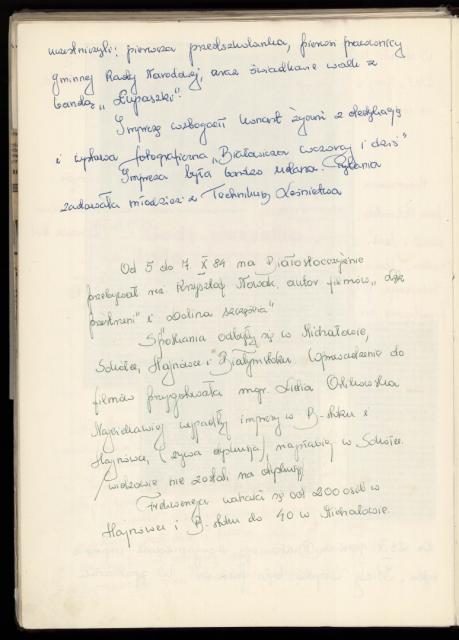 uczestniczyli: pierwsza przedszkolanka, pierwsi pracownicy
gminnej Rady Narodowej, oraz świadkowie walk z
bandą „Łupaszki".
Imprezę wzbogacił koncert życzeń z dedykacją
i wystawa fotograficzna „Białowieża wczoraj i dziś"
Impreza była bardzo udana. Pytania
zadawała młodzież z Technikum Leśnictwa
Od 5 do 7 X 84 na Białostocczyźnie
przebywał reż Krzysztof Nowak, autor filmów
przestrzeni" i "Dolina szczęścia"
Spotkania odbyły się w Michałowie,
Sokółce, Hajnówce i Białymstoku Wprowadzenie do
filmów przygotowała mgr. Lidia
Najciekawiej wypadły imprezy w B-stoku i
Hajnówce, (żywa dyskusja), najsłabiej w Sokółce.
/widzowie nie zostali na dyskusji/
Frekwencja wahała się od 200 osób w
Hajnówce i B-stoku do 40 w Michałowie.